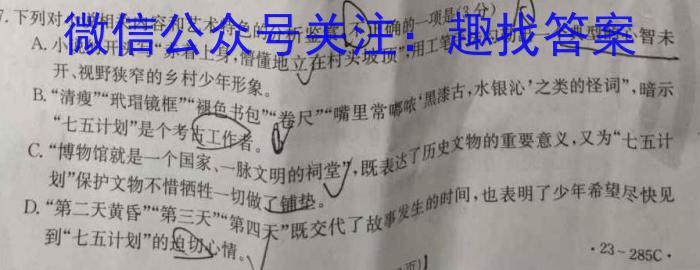 7.下列对 的一项是(3分)
微信公众号关注：趣找答案
A. 赤着上身,懵懂地立在村头坡顶”,用工笔 心智未
开、视野狭窄的乡村少年形象。
B.“清瘦”“玳瑁镜框”“褪色书包”“卷尺”“嘴里常嘟哝‘黑漆古,水银沁’之类的怪词”,暗示
“七五计划”是个考古工作者。
C.“博物馆就是一个国家、一脉文明的祠堂”,既表达了历史文物的重要意义,又为“七五计
划”保护文物不惜牺牲一切做了铺垫。
D.“第二天黄昏”“第三天”“第四天”既交代了故事发生的时间,也表明了少年希望尽快见
到“七五计划”的迫切心情。
·23-285C·
页)】